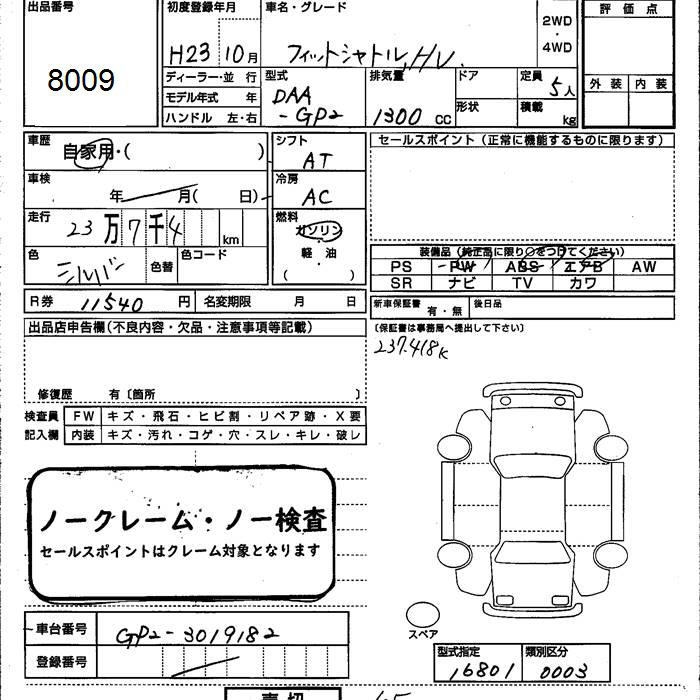 出品番号
8009
初度登録年月
H23 10月
車名・グレード
フィットシャトル,HV
2WD
・
4WD
評価点
外装 内装
ディーラー・並行
モデル年式 年
ハンドル 左・右
型式
DAA
-GP2
排気量
1300 cc
ドア
形状
定員
5人
積載
kg
車歴
自家用・( )
車検
年 月( 日)
走行
23万7千4 km
色
シルバー
色替
色コード
シフト
AT
冷房
AC
燃料
ガソリン
軽・油
( )
セールスポイント(正常に機能するものに限ります)
装備品(純正品に限り○をつけてください)
PS PW ABS エアB AW
SR ナビ TV カワ
R券 11540円 名変期限 月 日
新車保証書 有・無 後日品
(保証書は事務局へ提出して下さい)
237.418K
出品店申告欄(不良内容・欠品・注意事項等記載)
修復歴 有〔箇所 〕
検査員 FW キズ・飛石・ヒビ割・リペア跡・X要
記入欄 内装 キズ・汚れ・コゲ・穴・スレ・キレ・破レ
ノークレーム・ノー検査
セールスポイントはクレーム対象となります
スペア
車台番号 GP2-3019182
登録番号
型式指定 類別区分
16801 0003